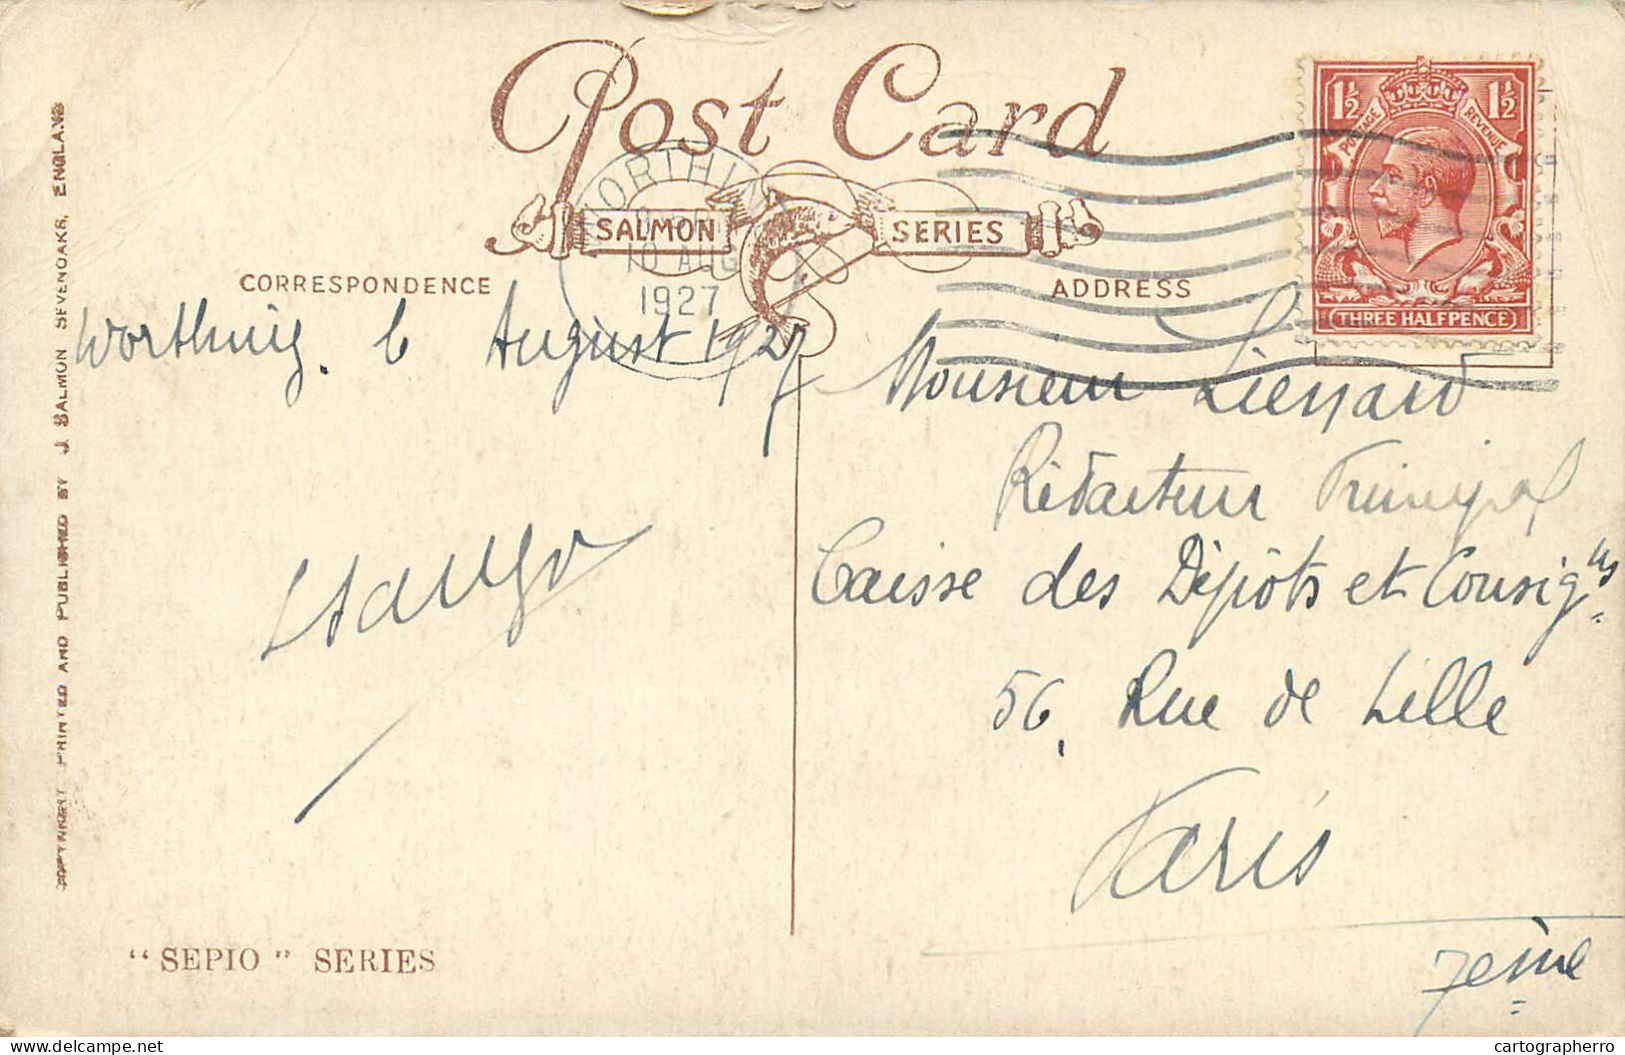 Post Card
SALMON SERIES
WORTHING
10 AUG
1927
1½ 1½
POSTAGE REVENUE
THREE HALFPENCE
CORRESPONDENCE
ADDRESS
COPYRIGHT PRINTED AND PUBLISHED BY J. SALMON SEVENOAKS, ENGLAND
Worthing. 6 August 1927
Monsieur Liénard
Rédacteur Principal
Caisse des Dépôts et Consig^ns
56, Rue de Lille
Paris
7ème
“SEPIO” SERIES
www.delcampe.net
cartographerro